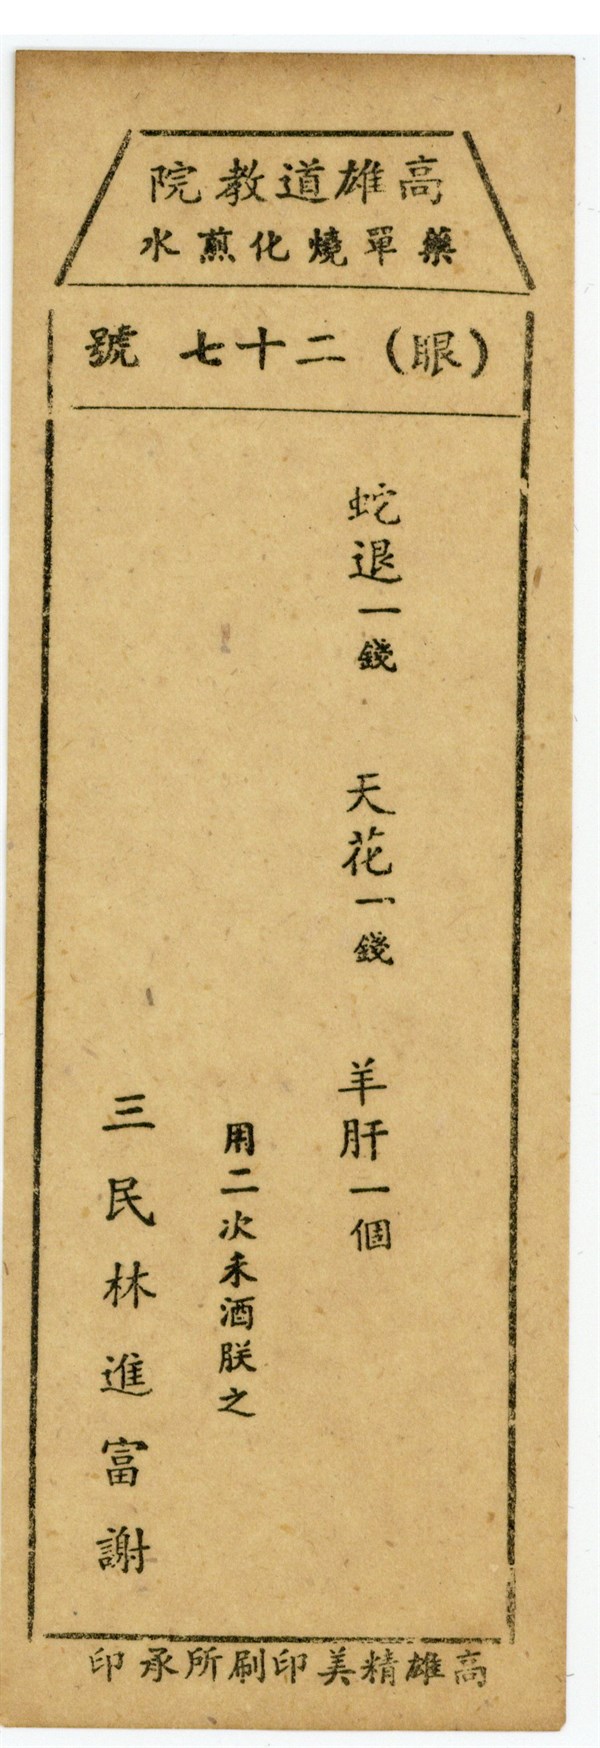 高雄道教院
藥單燒化煎水
（眼）二十七號
蛇退一錢　天花一錢　羊肝一個
用二次禾酒朕之
三民林進富謝
高雄精美印刷所承印